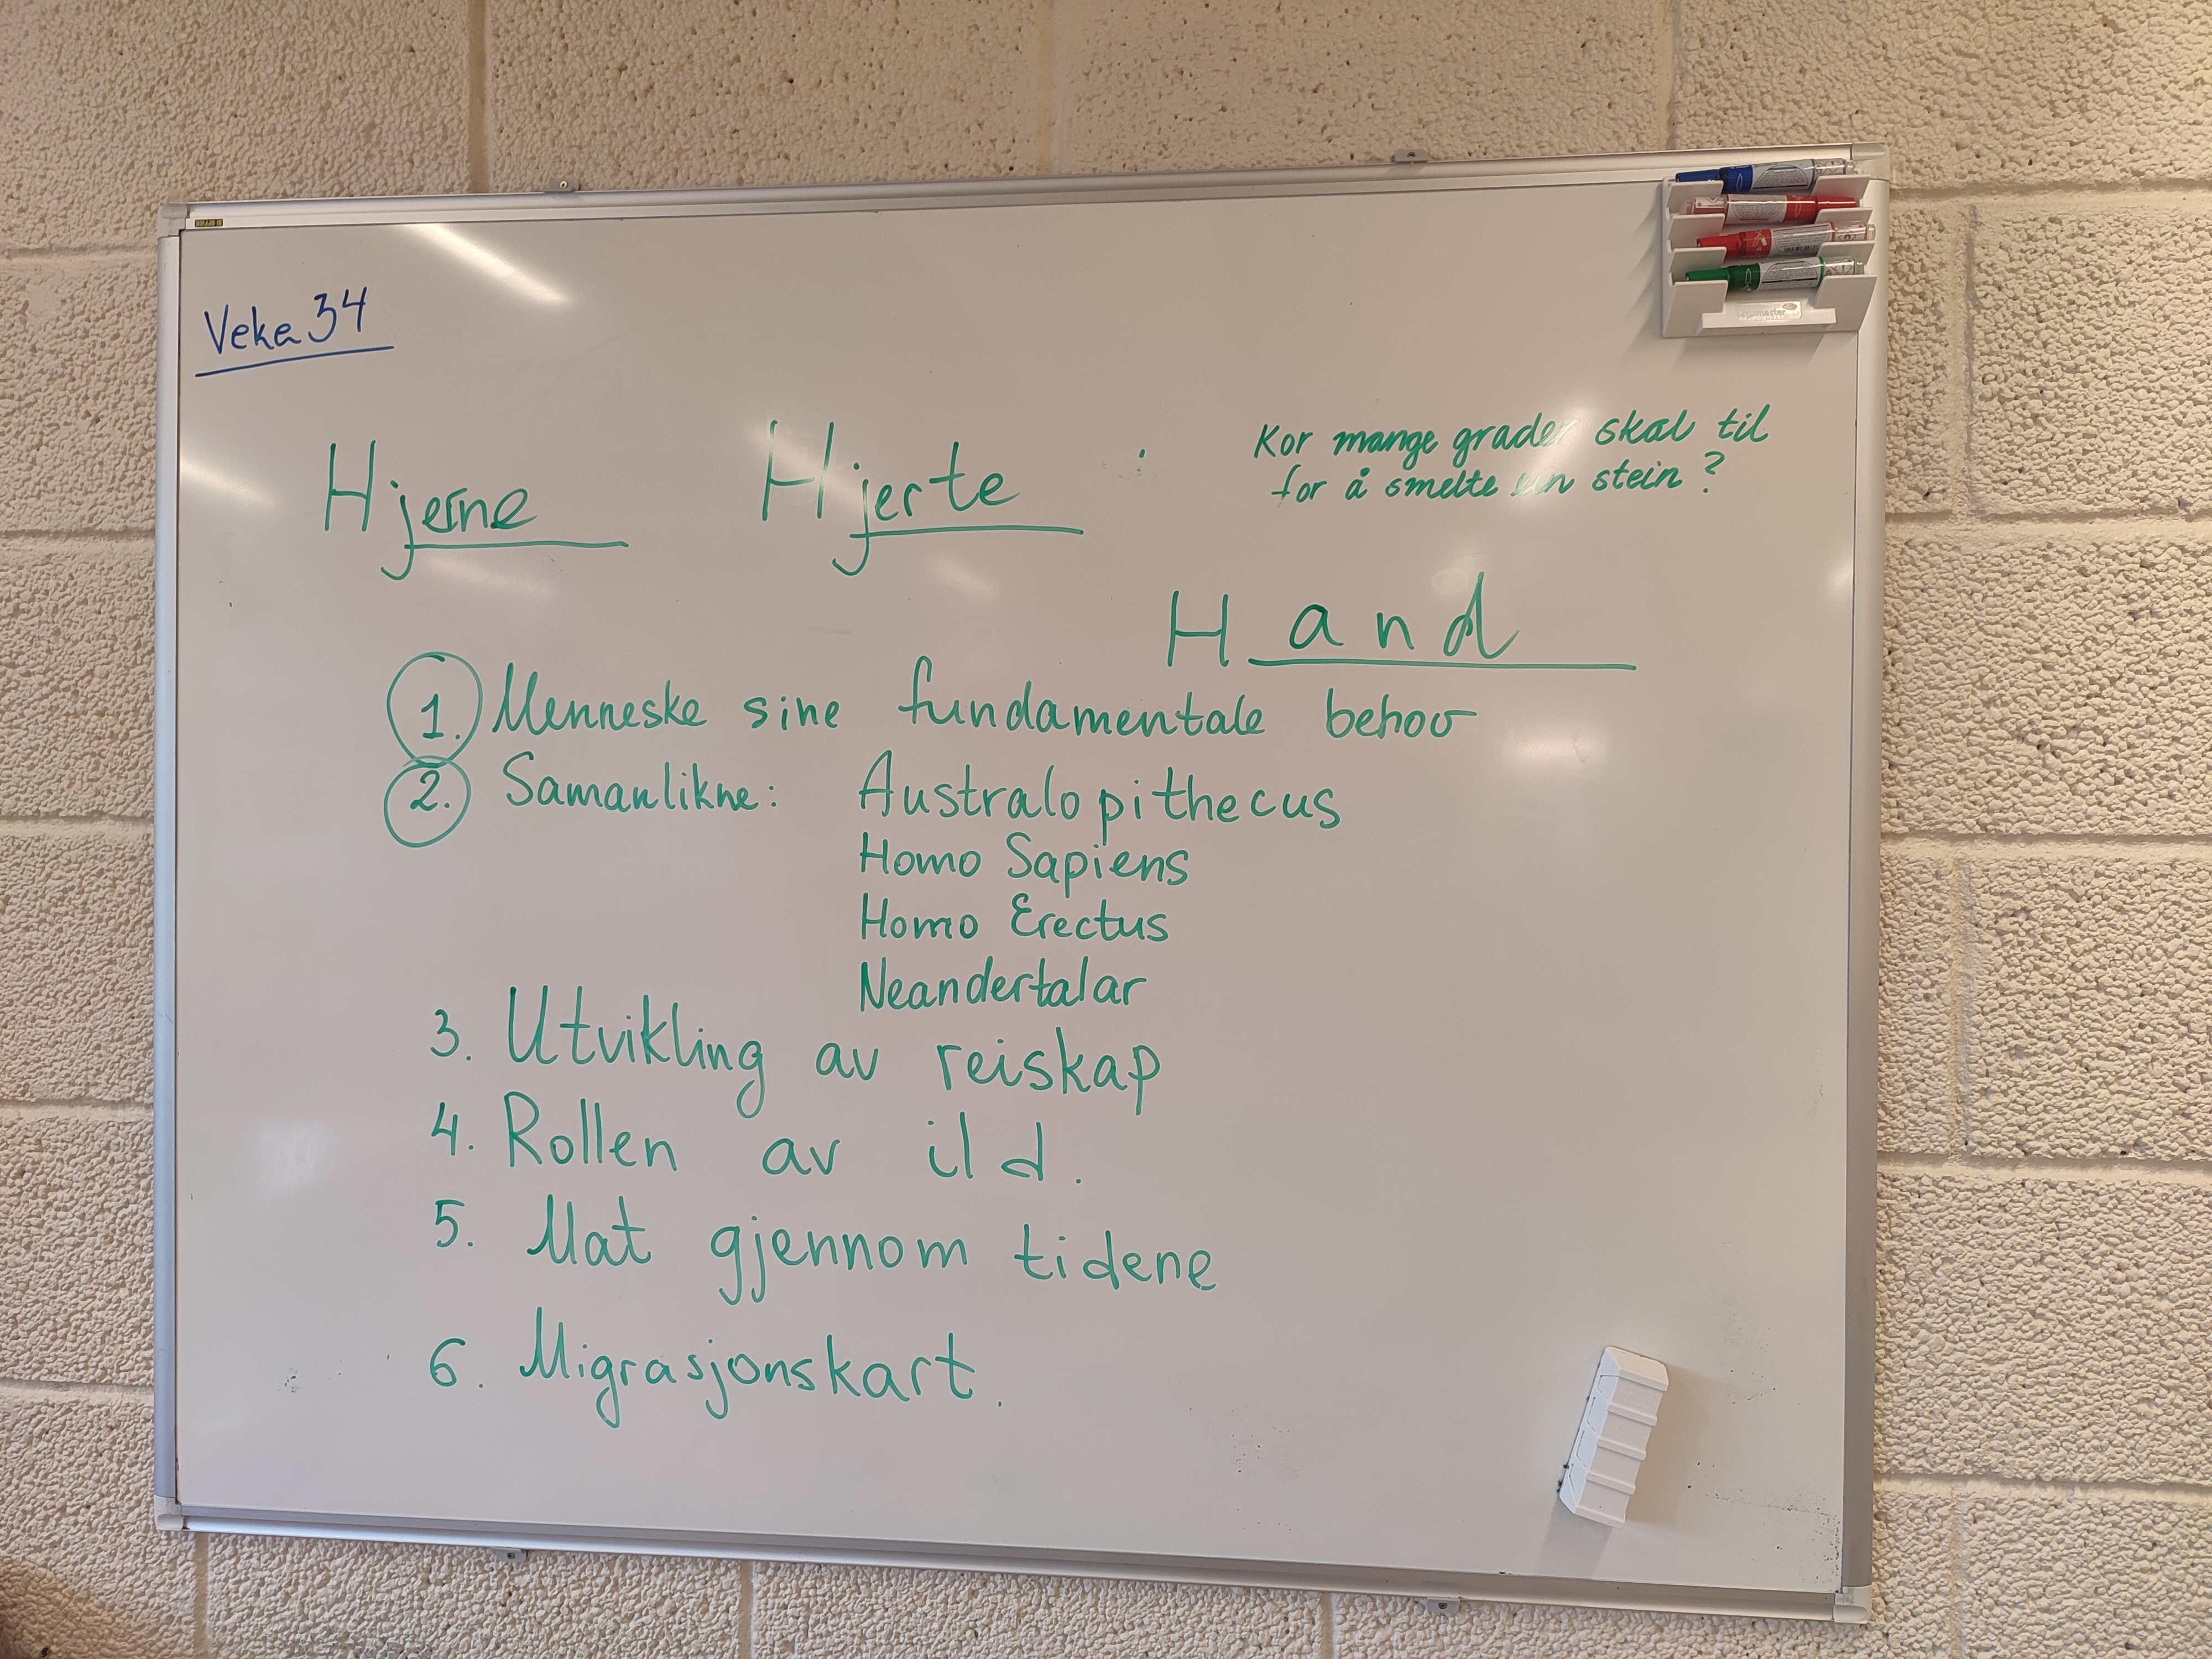 Veka 34
Hjerne Hjerte
Kor mange grader skal til
for å smelte ein stein?
Hand
1. Menneske sine fundamentale behov
2. Samanlikne: Australopithecus
Homo Sapiens
Homo Erectus
Neandertalar
3. Utvikling av reiskap
4. Rollen av ild.
5. Mat gjennom tidene
6. Migrasjonskart.